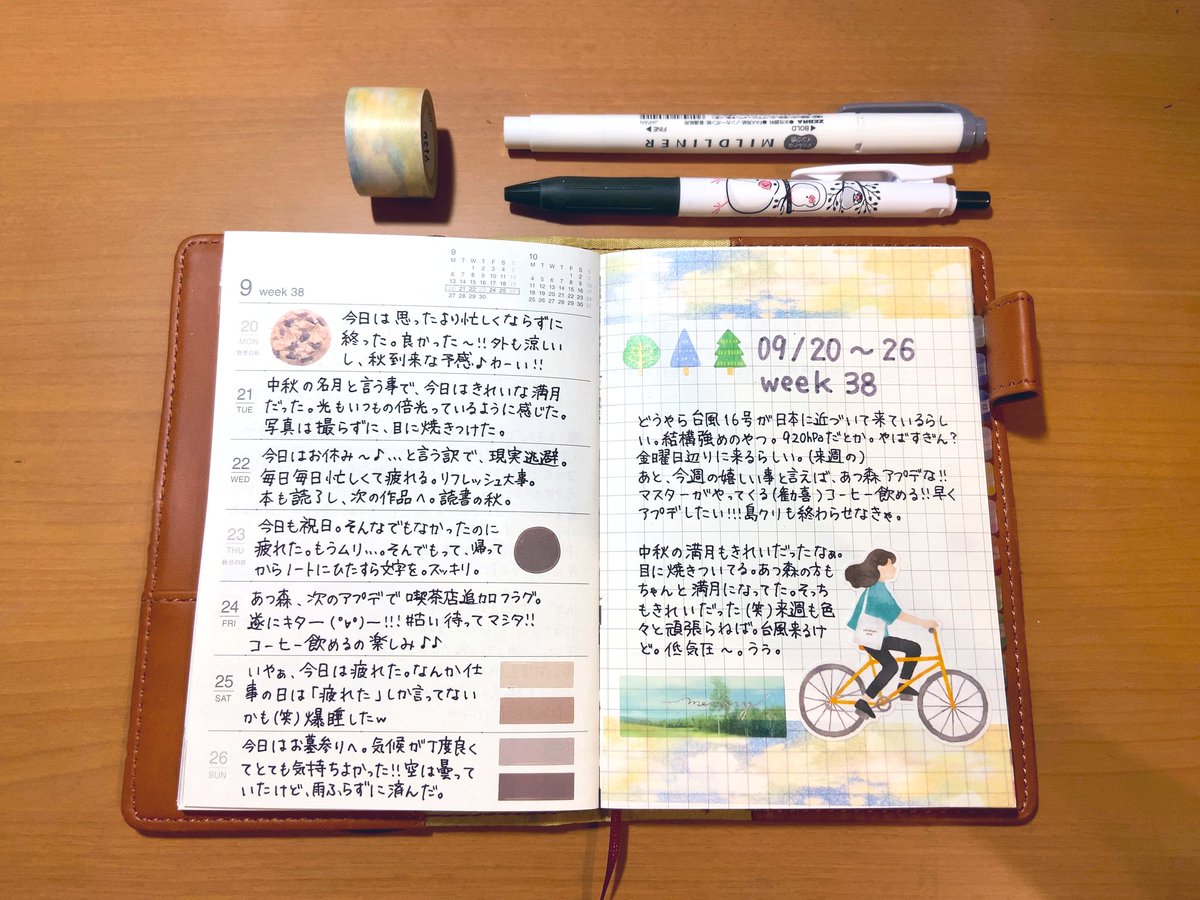 asta
MILDLINER
FINE
BOLD
ZEBRA
JAPAN
9 week 38
9
M T W T F S S
1 2 3 4 5
6 7 8 9 10 11 12
13 14 15 16 17 18 19
20 21 22 23 24 25 26
27 28 29 30
10
M T W T F S S
1 2 3
4 5 6 7 8 9 10
11 12 13 14 15 16 17
18 19 20 21 22 23 24
25 26 27 28 29 30 31
20 MON
敬老の日
今日は思ったより忙しくならずに
終った。良かった〜!!外も涼しい
し、秋到来な予感♪わーい!!
21 TUE
中秋の名月と言う事で、今日はきれいな満月
だった。光もいつもの倍光っているように感じた。
写真は撮らずに、目に焼きつけた。
22 WED
今日はお休み〜♪…と言う訳で、現実逃避。
毎日毎日忙しくて疲れる。リフレッシュ大事。
本も読了し、次の作品へ。読書の秋。
23 THU
秋分の日
今日も祝日。そんなでもなかったのに
疲れた。もうムリ…。そんでもって、帰って
からノートにひたすら文字を。スッキリ。
24 FRI
あつ森、次のアプデで喫茶店追加フラグ。
遂にキター(°∀°)ー!!!#占い待ってマシタ!!
コーヒー飲めるの楽しみ♪♪
25 SAT
いやぁ、今日は疲れた。なんか仕
事の日は「疲れた」しか言ってない
かも(笑)爆睡したw
26 SUN
今日はお墓参りへ。気候が丁度良く
てとても気持ちよかった!!空は曇って
いたけど、雨ふらずに済んだ。
09/20〜26
week 38
どうやら台風16号が日本に近づいて来ているらし
い。結構強めのやつ。920hPaだとか。やばすぎん?
金曜日辺りに来るらしい。(来週の)
あと、今週の嬉しい事と言えば、あつ森アプデな!!
マスターがやってくる(歓喜)コーヒー飲める!!早く
アプデしたい!!!島クリも終わらせなきゃ。
中秋の満月もきれいだったなぁ。
目に焼きついてる。あつ森の方も
ちゃんと満月になってた。そっち
もきれいだった(笑)来週も色
々と頑張らねば。台風来るけ
ど。低気圧〜。うぅ。